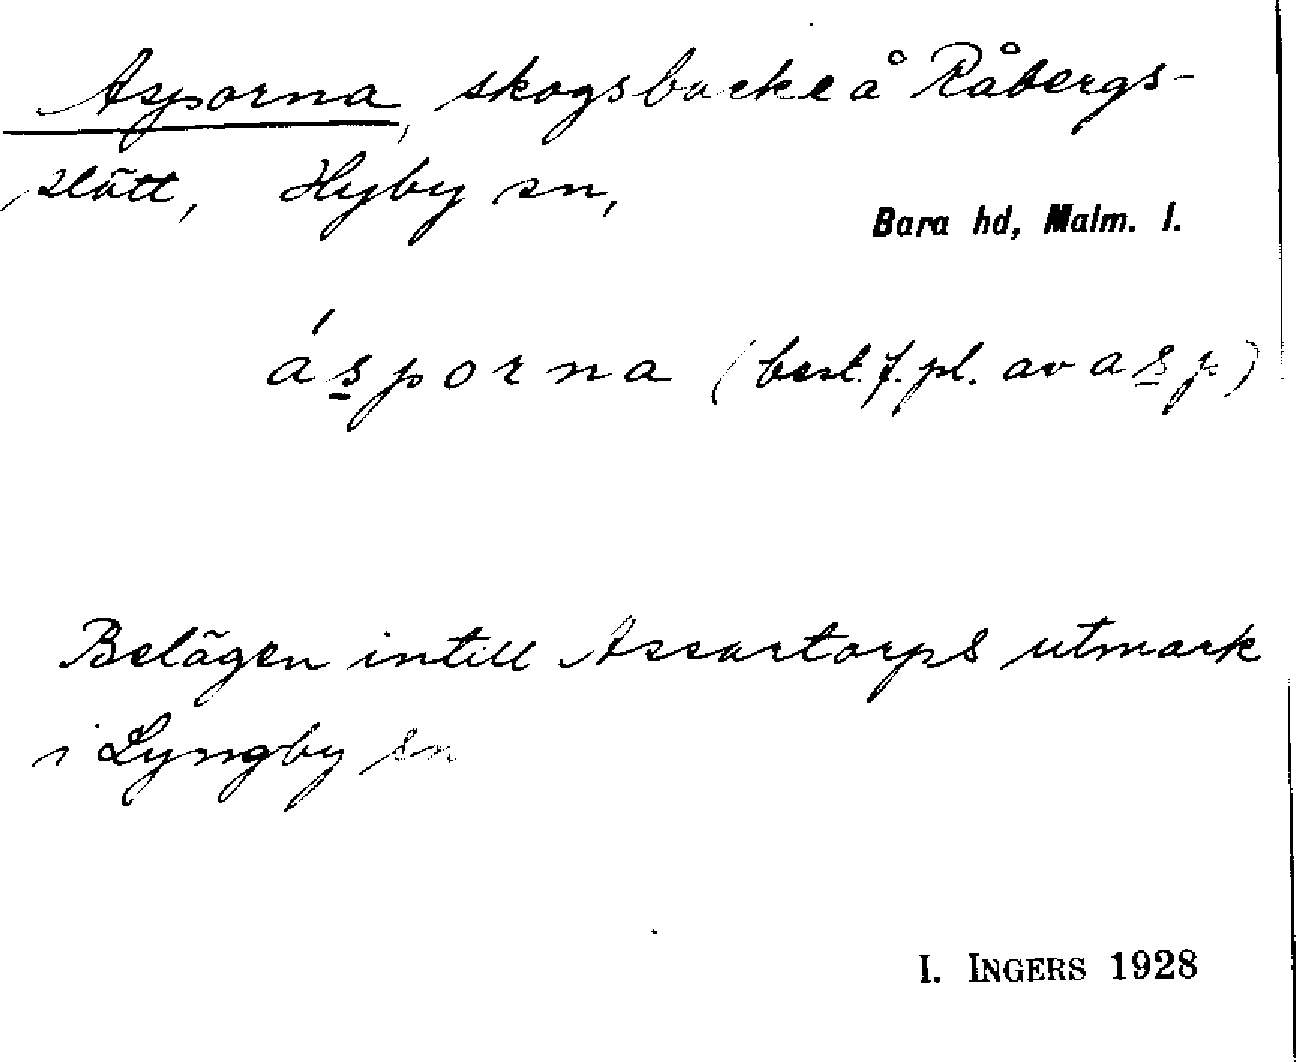 Asporna, skogsbacke å Råbergs-
slätt, Hyby sn,
Bara hd, Malm. l.
ásporna (best. f. pl. av asp)
Belägen intill Assartorps utmark
i Lyngby sn
I. INGERS 1928